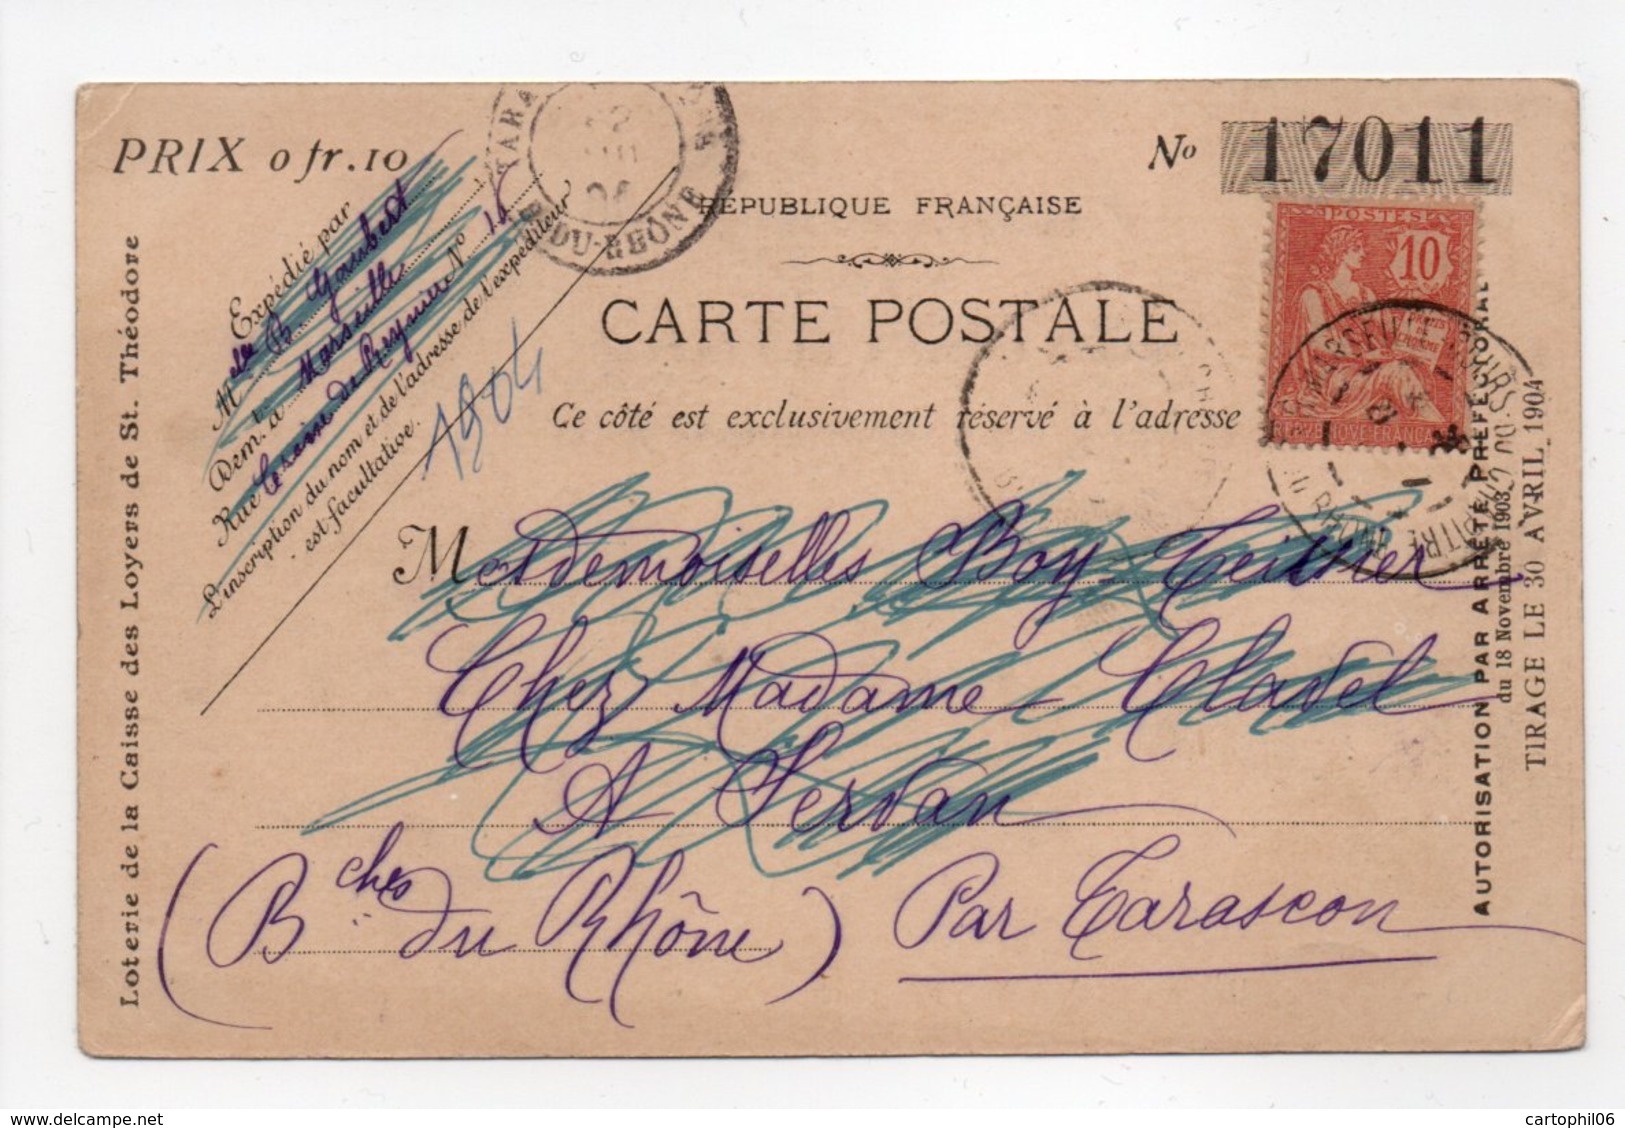 PRIX 0 fr. 10
No 17011
RÉPUBLIQUE FRANÇAISE
CARTE POSTALE
Ce côté est exclusivement réservé à l'adresse
Expédié par
Mlle B Goubert
Dem. à Marseille
Rue No 15
L'inscription du nom et de l'adresse de l'expéditeur
est facultative.
1904
Mesdemoiselles Boy Teissier
Chez Madame Clavel
A Servan
(Bches du Rhône) Par Tarascon
Loterie de la Caisse des Loyers de St. Théodore
AUTORISATION PAR ARRÊTÉ PRÉFECTORAL
du 18 Novembre 1903
TIRAGE LE 30 AVRIL 1904
POSTES
10
B. DU-RHÔNE
MARSEILLE
cartophil06